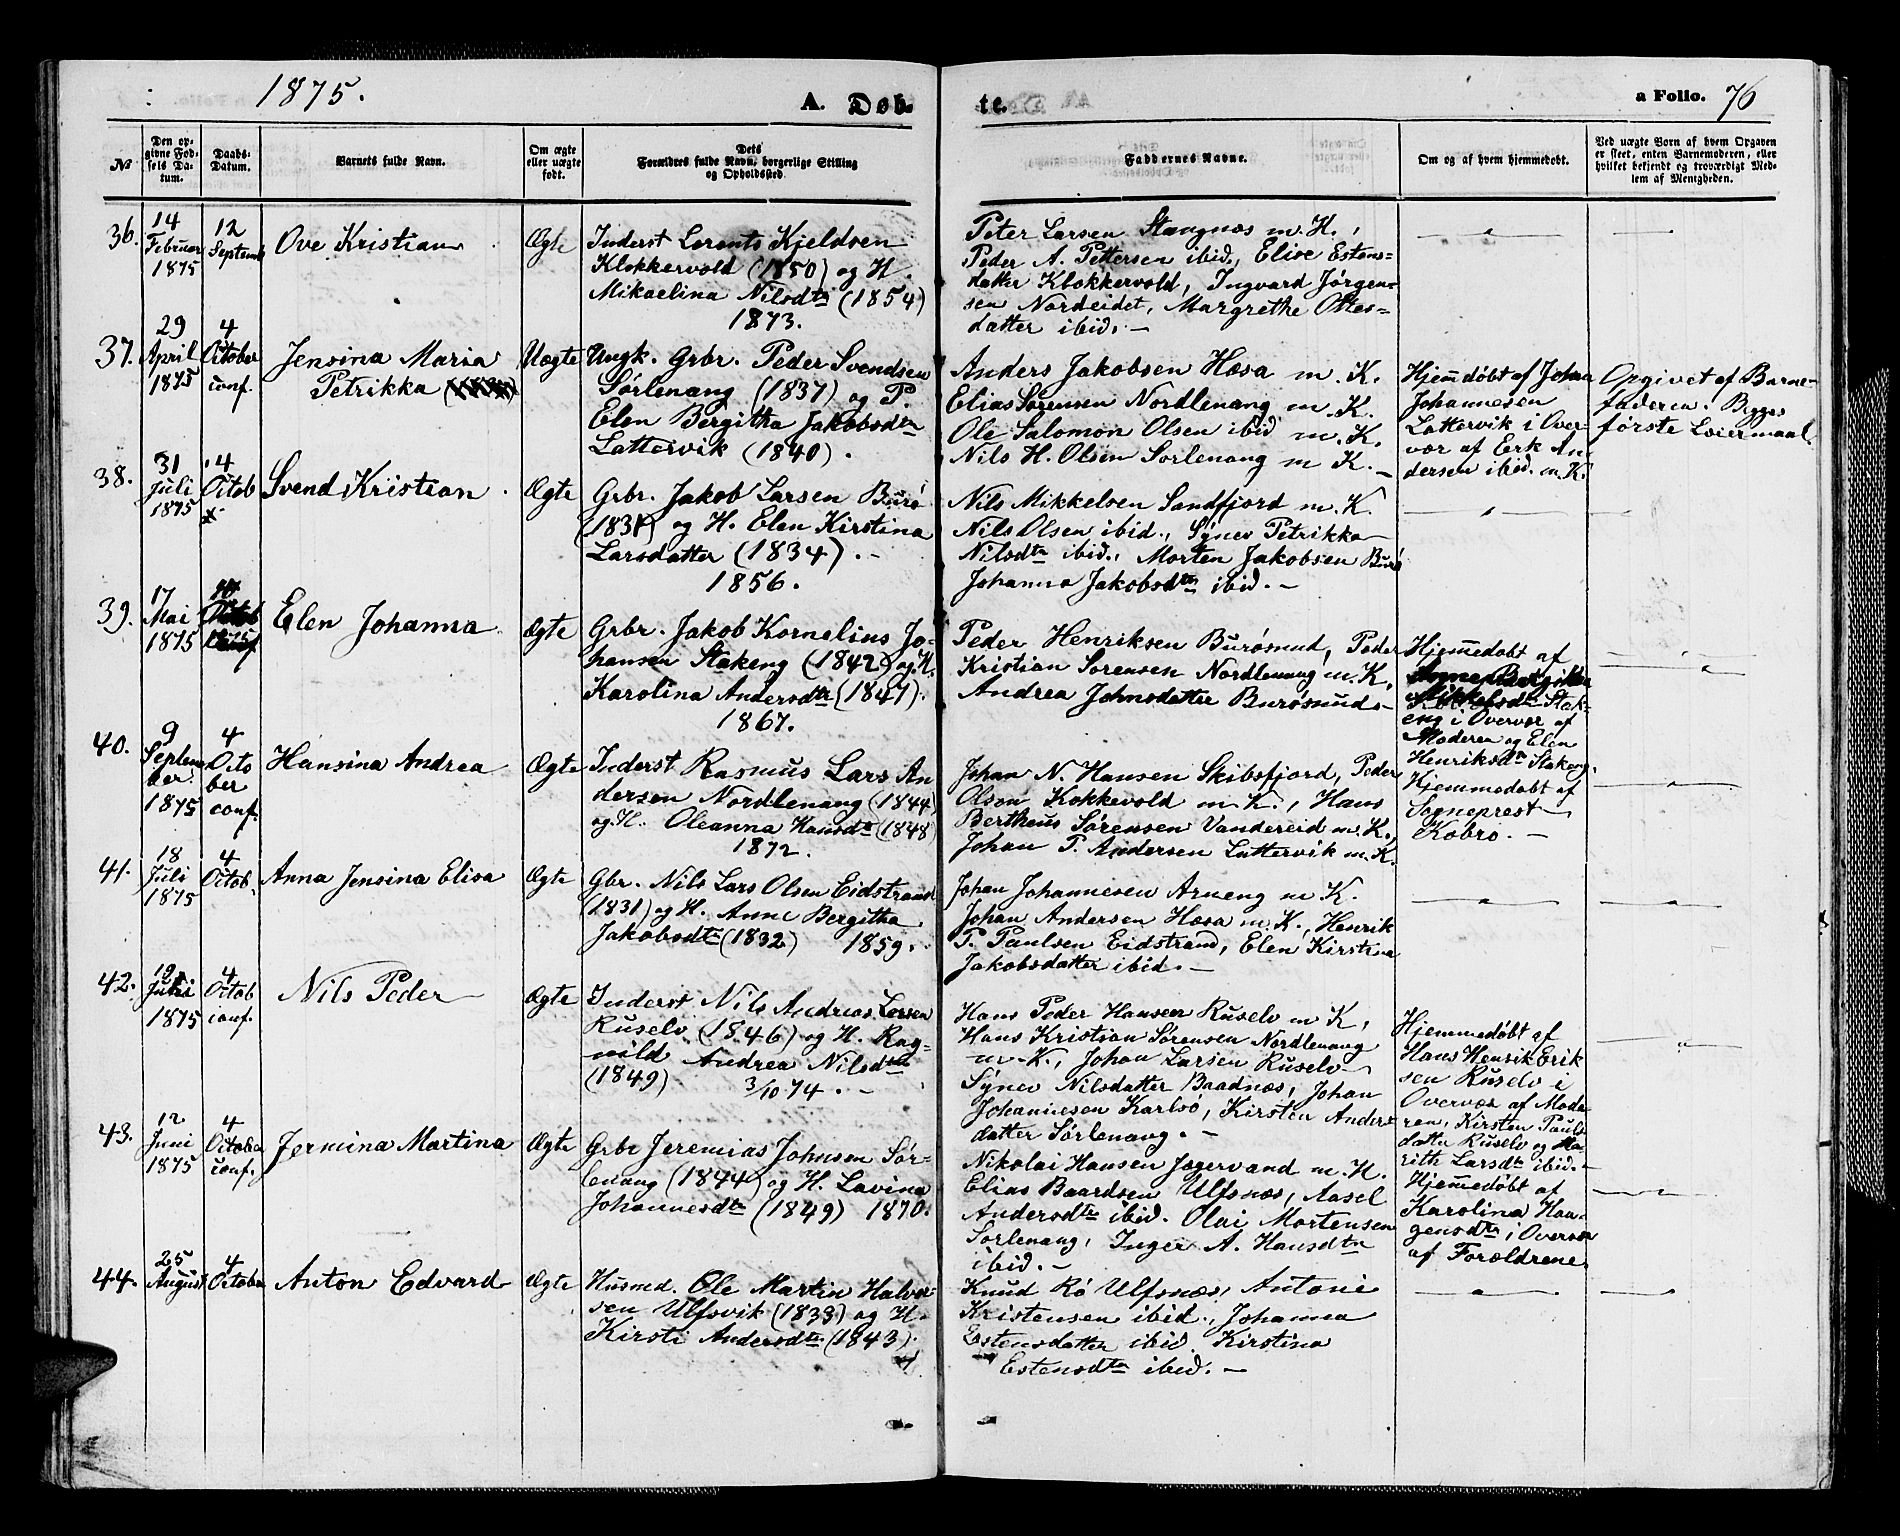 1875.
A. Døb
te.
a Folio. 76
№
Den op-
givne Fød-
sels Da-
tum.
Daabs-
Datum.
Barnets fulde Navn.
Om ægte
eller uægte
født.
Dets
Forældres fulde Navn, borgerlige Stilling
og Opholdssted.
Faddernes Navne.
Om og af hvem hjemmedøbt.
Ved uægte Børn af hvem Opgaven
er skeet, enten Barnemoderen, eller
hvilket bekjendt og troværdigt Med-
lem af Menigheden.
36.
14
Februar
1875
12
Septemb
Ove Kristian
Ægte
Inderst Lorents Kjeldsen
Klokkervold (1850) og H.
Mikaelina Nilsdtr (1854)
1873.
Peter Larsen Stangnæs m. K.,
Peder A. Pettersen ibid., Elise Estens-
datter Klokkervold, Ingvard Jørgen-
sen Nordeidet, Margrethe Ottes-
datter ibid. —
37.
29
April
1875
4
October
conf.
Jensina Maria
Petrikka
Uægte
Ungk. Grbr. Peder Svendsen
Sørlenang (1837) og P.
Elen Bergitha Jakobsdtr
Lattervik (1840).
Anders Jakobsen Hæsa m. K.
Elias Sørensen Nordlenang m. K.
Ole Salomon Olsen ibid m. K.
Nils H. Olsen Sørlenang m K. —
Hjemdøbt af Johan
Johannesen
Lattervik i Over-
vær af Erk An-
dersen ibid. m. K.
Opgivet af Barne-
faderen. Begges
første Leiermaal.
38.
31
Juli
1875
4
Octob
Svend Kristian
Ægte
Grbr. Jakob Larsen Burø
(1831) og H. Elen Kirstina
Larsdatter (1834). —
1856.
Nils Mikkelsen Sandfjord m. K.
Nils Olsen ibid., Synev Petrikka
Nilsdtr ibid., Morten Jakobsen Burø
Johanna Jakobsdtr ibid. —
39.
17
Mai
1875
Elen Johanna
Ægte
Grbr. Jakob Kornelius Jo-
hansen Stakeng (1842) og H.
Karolina Andersdtr (1847).
1867.
Peder Henriksen Burøsund, Peder
Kristian Sørensen Nordlenang m. K,
Andrea Johnsdatter Burøsund
Hjemmedøbt af
Mikkelsdtr Stak-
eng i Overvær af
Moderen og Elen
Henriksdtr Stakeng.
40.
9
Septem
ber
1875
4
Octo
ber
conf.
Hansina Andrea
Ægte
Inderst Rasmus Lars An
dersen Nordlenang (1844)
og H. Oleanna Hansdtr (1848)
1872.
Johan N. Hansen Skibsfjord, Peder
Olsen Kokkevold m. K., Hans
Bertheus Sørensen Vandereid m. K.,
Johan P. Andersen Lattervik m. K.
Hjemmedøbt af
Sogneprest
Kobro. —
41.
18
Juli
1875
4
Octob.
Anna Jensina Elisa
Ægte
Gbr. Nils Lars Olsen Eidstrand
(1831) og H. Anne Bergitha
Jakobsdtr (1832) 1859.
Johan Johannesen Arneng m K.
Johan Andersen Hæsa m. K., Henrik
P. Paulsen Eidstrand, Elen Kirstina
Jakobsdatter ibid. —
42.
19
Juli
1875
4
Octob
conf.
Nils Peder
Ægte
Inderst Nils Andreas Larsen
Ruselv (1846) og H. Rag-
nild Andrea Nilsdtr
(1849) 3/10 74. —
Hans Peder Hansen Ruselv m K,
Hans Kristian Sørensen Nordlenang
m. K., Johan Larsen Ruselv
Synev Nilsdatter Baadnæs, Johan
Johannesen Karlsø, Kirsten Anders
datter Sørlenang. —
Hjemmedøbt af
Hans Henrik Erik
sen Ruselv i
Overvær af Mode
ren, Kirsten Pauls
datter Ruselv og Ma
rith Larsdtr ibid. —
43.
12
Juni
1875
4
October
conf.
Jermina Martina
Ægte
Grbr Jeremias Johnsen Sør-
lenang (1844) og H. Lavina
Johannesdtr (1849) 1870.
Nikolai Hansen Jægervand m. H.
Elias Baardsen Ulfsnæs, Aasel
Andersdtr ibid. Olai Mortensen
Sørlenang, Inger A. Hansdtr
ibid. —
Hjemmedøbt af
Karolina Haa-
gensdtr i Overvær
af Forældrene
44.
25
August
4
Octobe
Anton Edvard
Ægte
Husmd. Ole Martin Halvor
sen Ulfsvik (1838) og H.
Kirsti Andersdtr (1843).
Knud Rø Ulfsnæs, Antoni
Kristensen ibid., Johanna
Estensdatter ibid. Kirstina
Estensdtr ibid. —